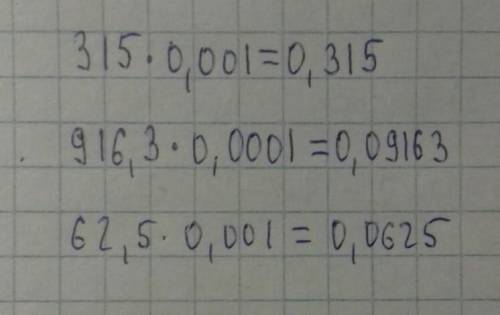 315·0,001=0,315
916,3·0,0001=0,09163
62,5·0,001=0,0625